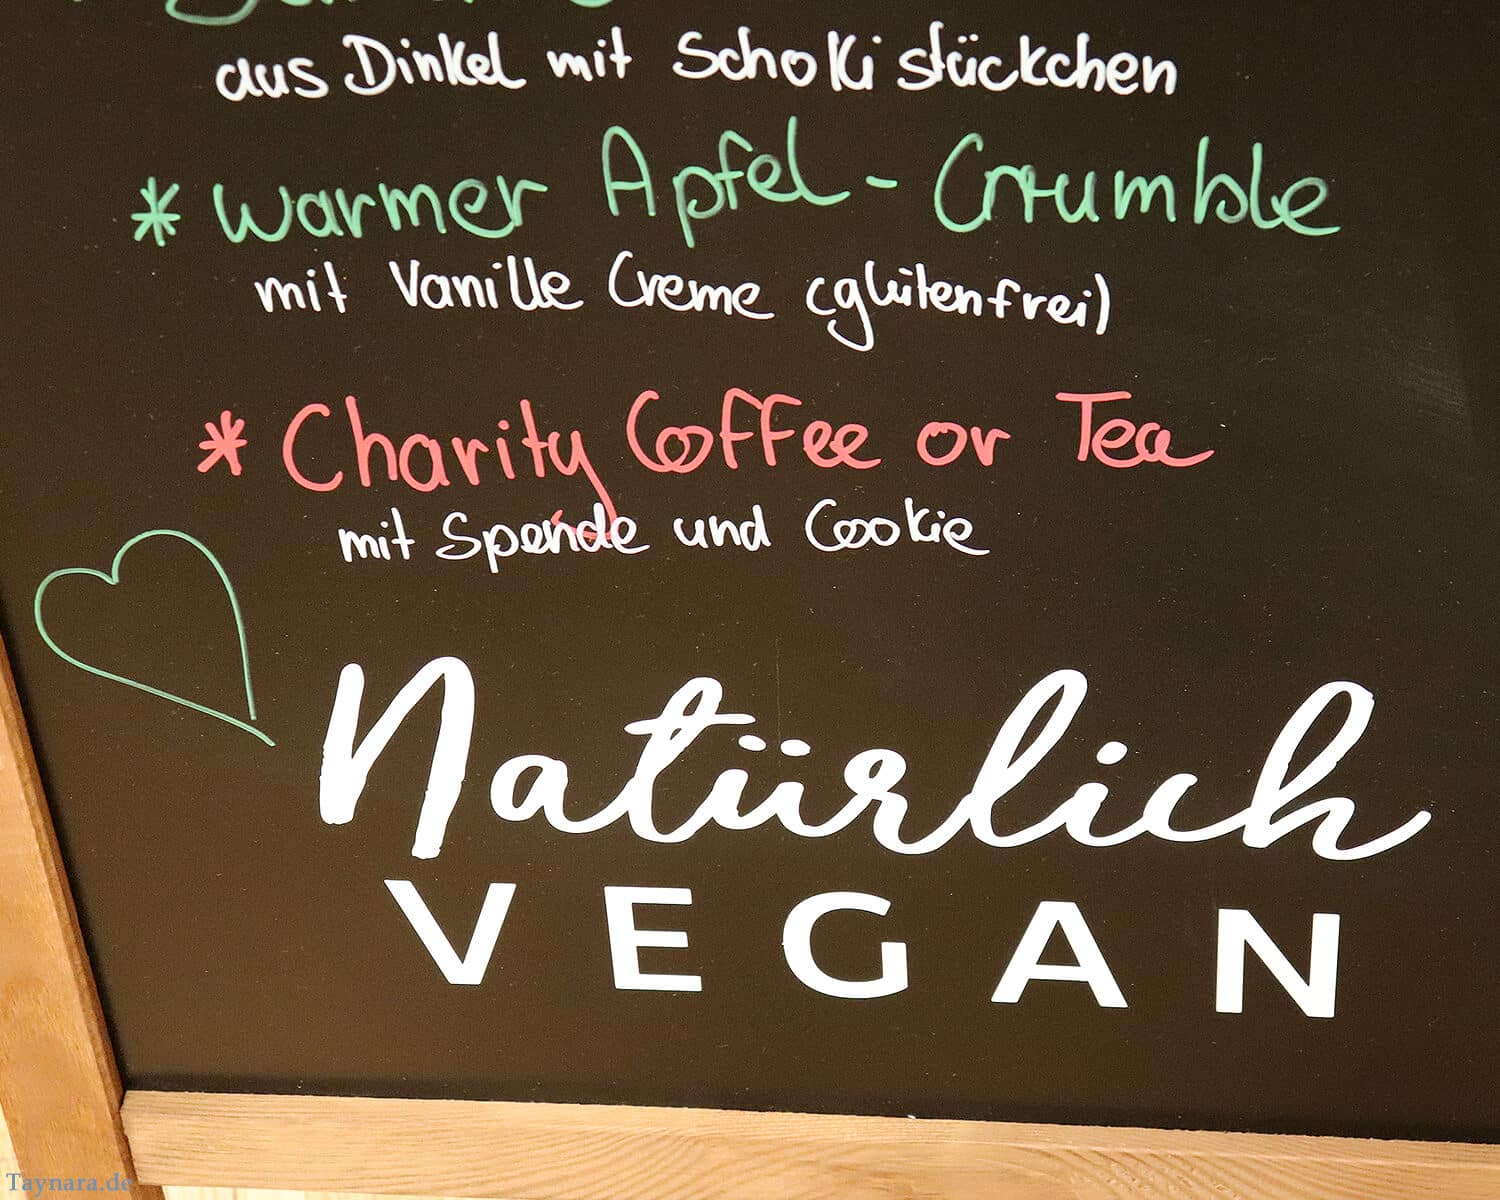 aus Dinkel mit Schoki stückchen
* Warmer Apfel - Crumble
mit Vanille Creme (glutenfrei)
* Charity Coffee or Tea
mit Spende und Cookie
Natürlich
VEGAN
Taynara.de